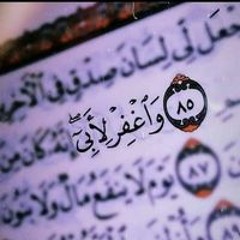 جْعَل لِّي لِسَانَ صِدْقٍ فِي ٱلْآخِرِ
٨٥ وَٱغْفِرْ لِأَبِىٓ إِنَّهُۥ كَانَ مِنَ
٨٧ يَوْمَ لَا يَنفَعُ مَالٌ وَلَا بَنُونَ